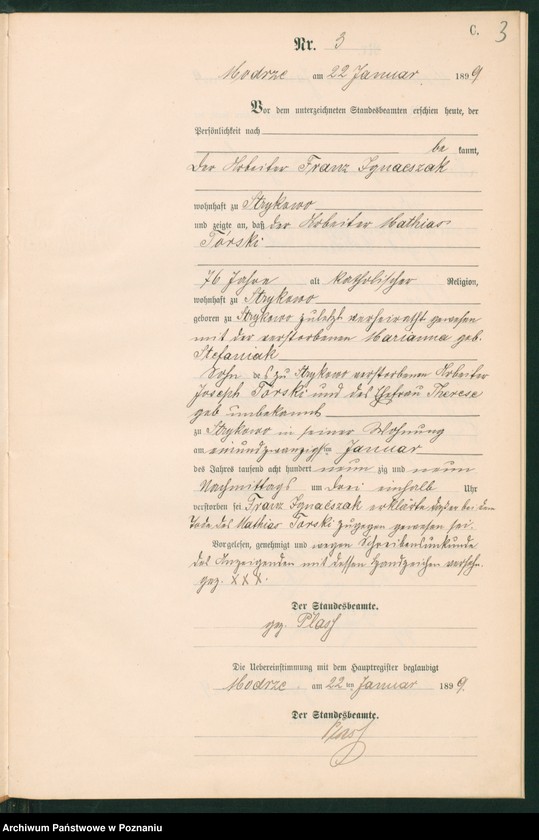 C. 3
Nr. 3
Modrze am 22 Januar 1899
Vor dem unterzeichneten Standesbeamten erschien heute, der
Persönlichkeit nach
be kannt,
der Arbeiter Franz Ignaeszak
wohnhaft zu Strykowo
und zeigte an, daß der Arbeiter Mathias
Torski
76 Jahre alt katholischer Religion,
wohnhaft zu Strykowo
geboren zu Strykowo zuletzt verheirathet gewesen
mit der verstorbenen Marianna geb.
Stefaniak
Sohn des zu Strykowo verstorbenen Arbeiter
Joseph Torski und des Ehefrau Therese
geb. unbekannt
zu Strykowo in seiner Wohnung
am einundzwanzigsten Januar
des Jahres tausend acht hundert neun zig und neun
Nachmittags um drei einhalb Uhr
verstorben sei Franz Ignaeszak erklärte daß er bei dem
Tode des Mathias Torski zugegen gewesen sei.
Vorgelesen, genehmigt und wegen Schreibensunkunde
des Anzeigenden mit dessen Handzeichen versehn.
gez. XXX.
Der Standesbeamte.
gez.
Die Uebereinstimmung mit dem Hauptregister beglaubigt
Modrze am 22ten Januar 1899.
Der Standesbeamte.
Archiwum Państwowe w Poznaniu